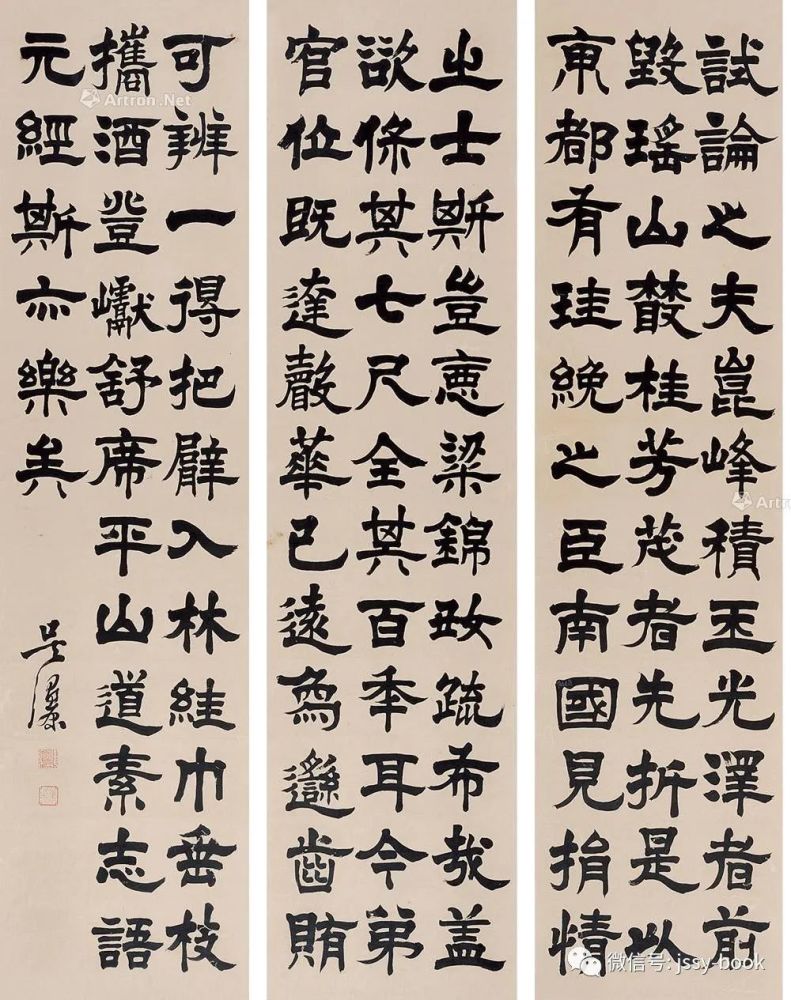 試論之夫崑峰積玉光澤者前
毀瑤山叢桂芳茂者先折是以
東都有挂絻之臣南國見捐情
之士斯豈惡梁錦好蔬希哉盖
欲保其七尺全其百年耳今弟
官位既達聲華已遠象邎齒賄
可辨一得把臂入林挂巾垂枝
攜酒登巘舒席平山道素志語
元經斯亦樂矣
吳
Artron.Net
微信号: jssy-book